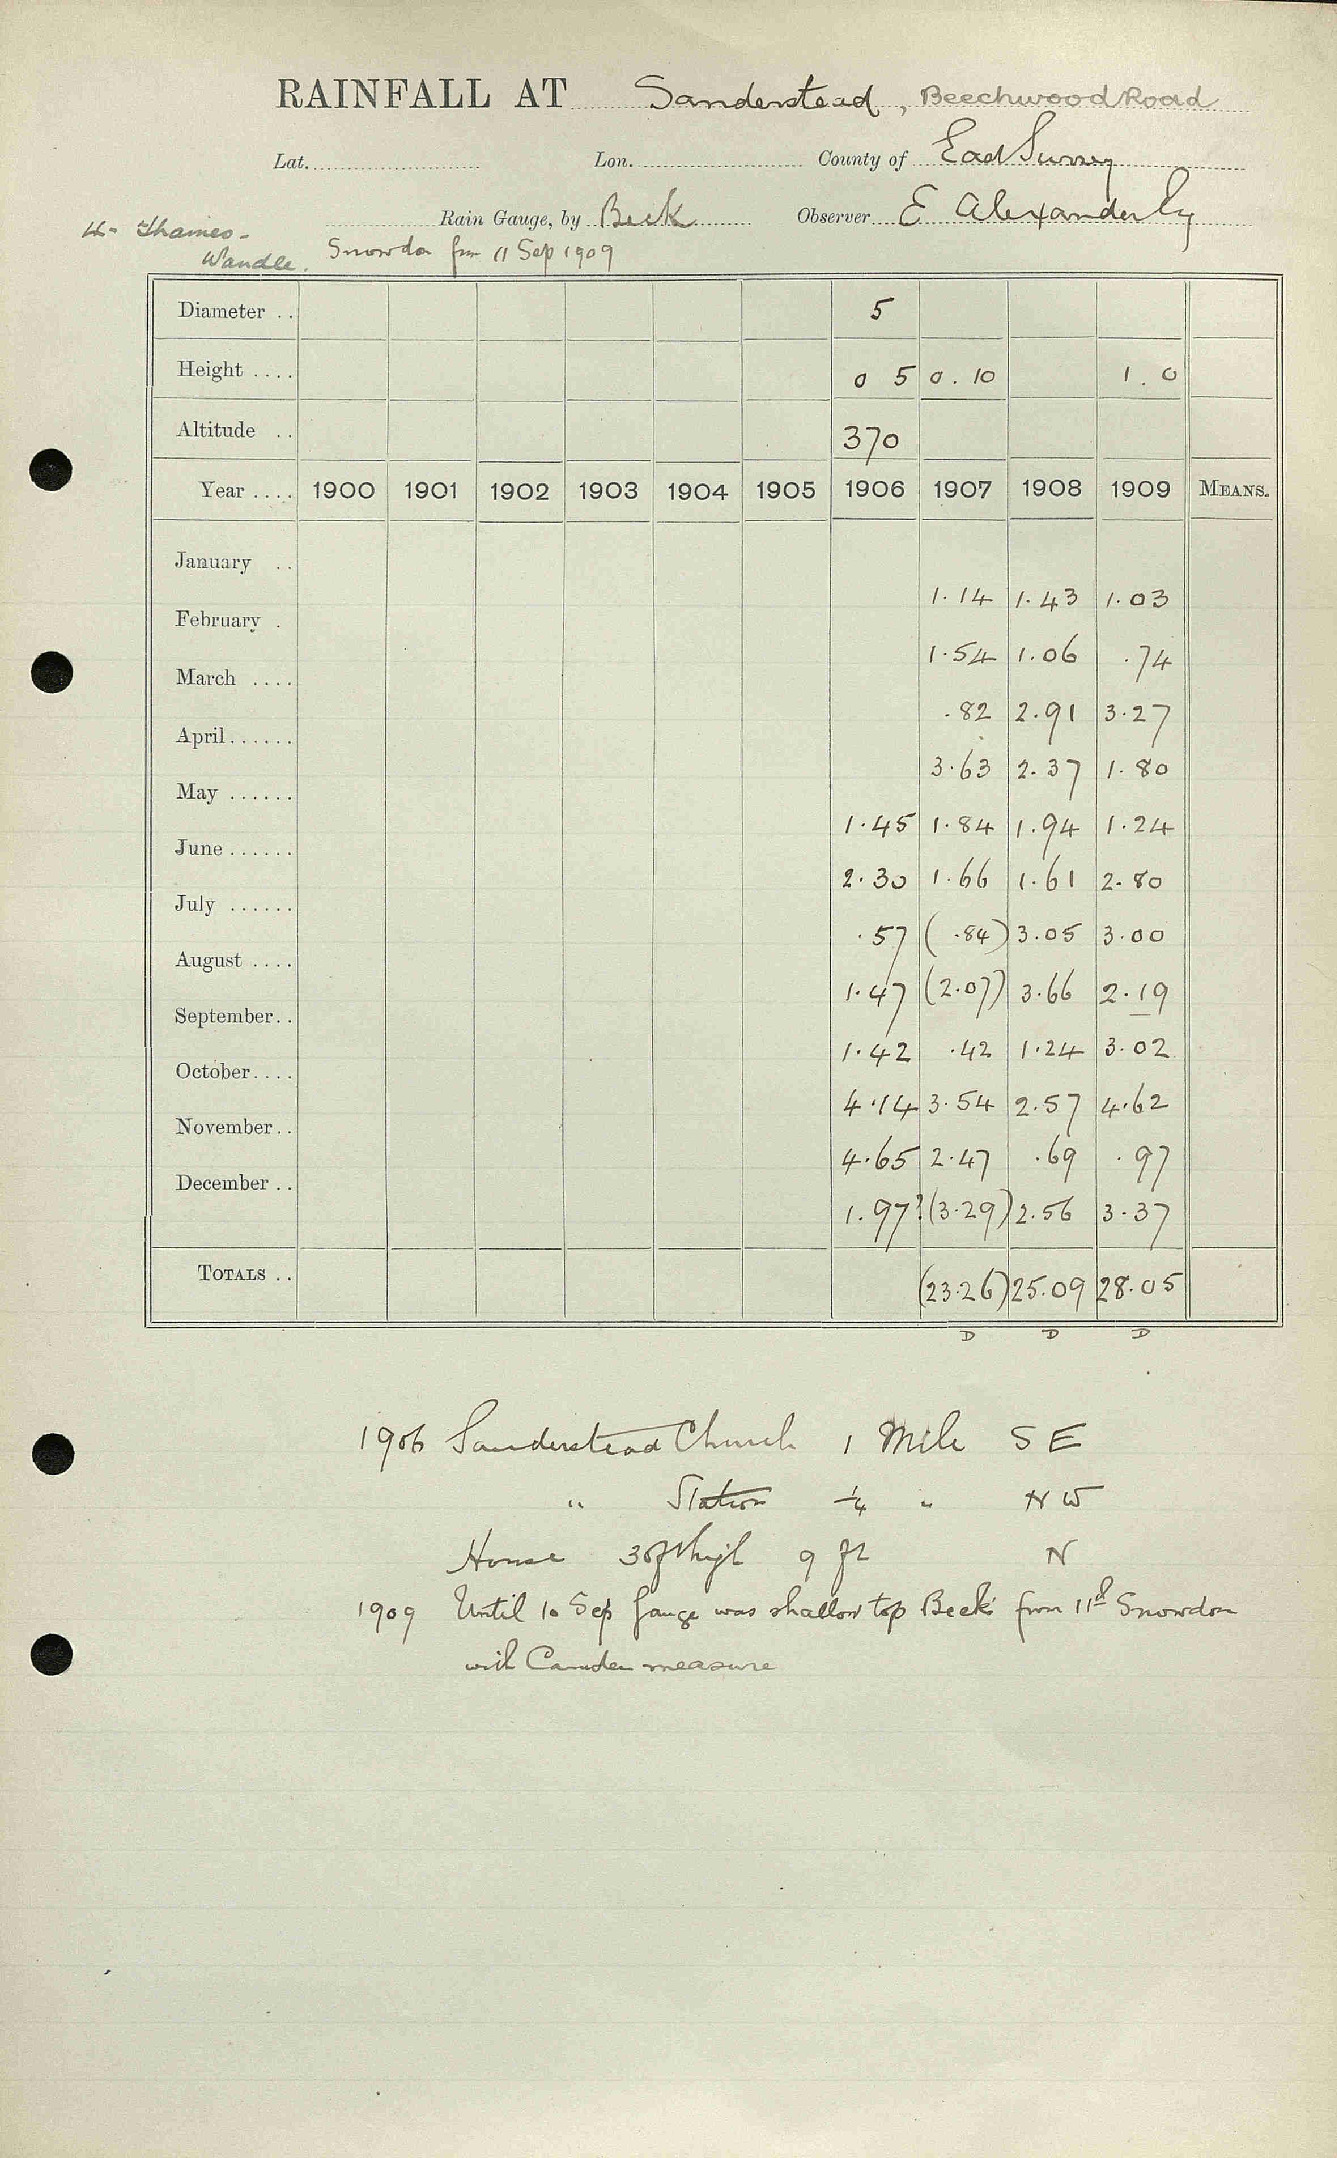 RAINFALL AT Sanderstead, Beechwood Road
Lat. Lon. County of East Surrey
Rain Gauge, by Beck Observer E Alexander Esq
Thames-
Wandle. Snowdon from 11 Sep 1909
Diameter .. 5
Height .... 0 5 0.10 1.0
Altitude .. 370
Year .... 1900 1901 1902 1903 1904 1905 1906 1907 1908 1909 MEANS.
January .. 1.14 1.43 1.03
February . 1.54 1.06 .74
March .... .82 2.91 3.27
April...... 3.63 2.37 1.80
May ...... 1.45 1.84 1.94 1.24
June...... 2.30 1.66 1.61 2.80
July ...... .57 (.84) 3.05 3.00
August .... 1.47 (2.07) 3.66 2.19
September.. 1.42 .42 1.24 3.02
October.... 4.14 3.54 2.57 4.62
November.. 4.65 2.47 .69 .97
December .. 1.97? (3.29) 2.56 3.37
TOTALS .. (23.26) 25.09 28.05
D D D
1906 Sanderstead Church 1 Mile SE
" Station ¼ " NW
House 30ft high 9 ft N
1909 Until 10 Sep gauge was shallow top Beck's from 11th Snowdon
with Camden measure